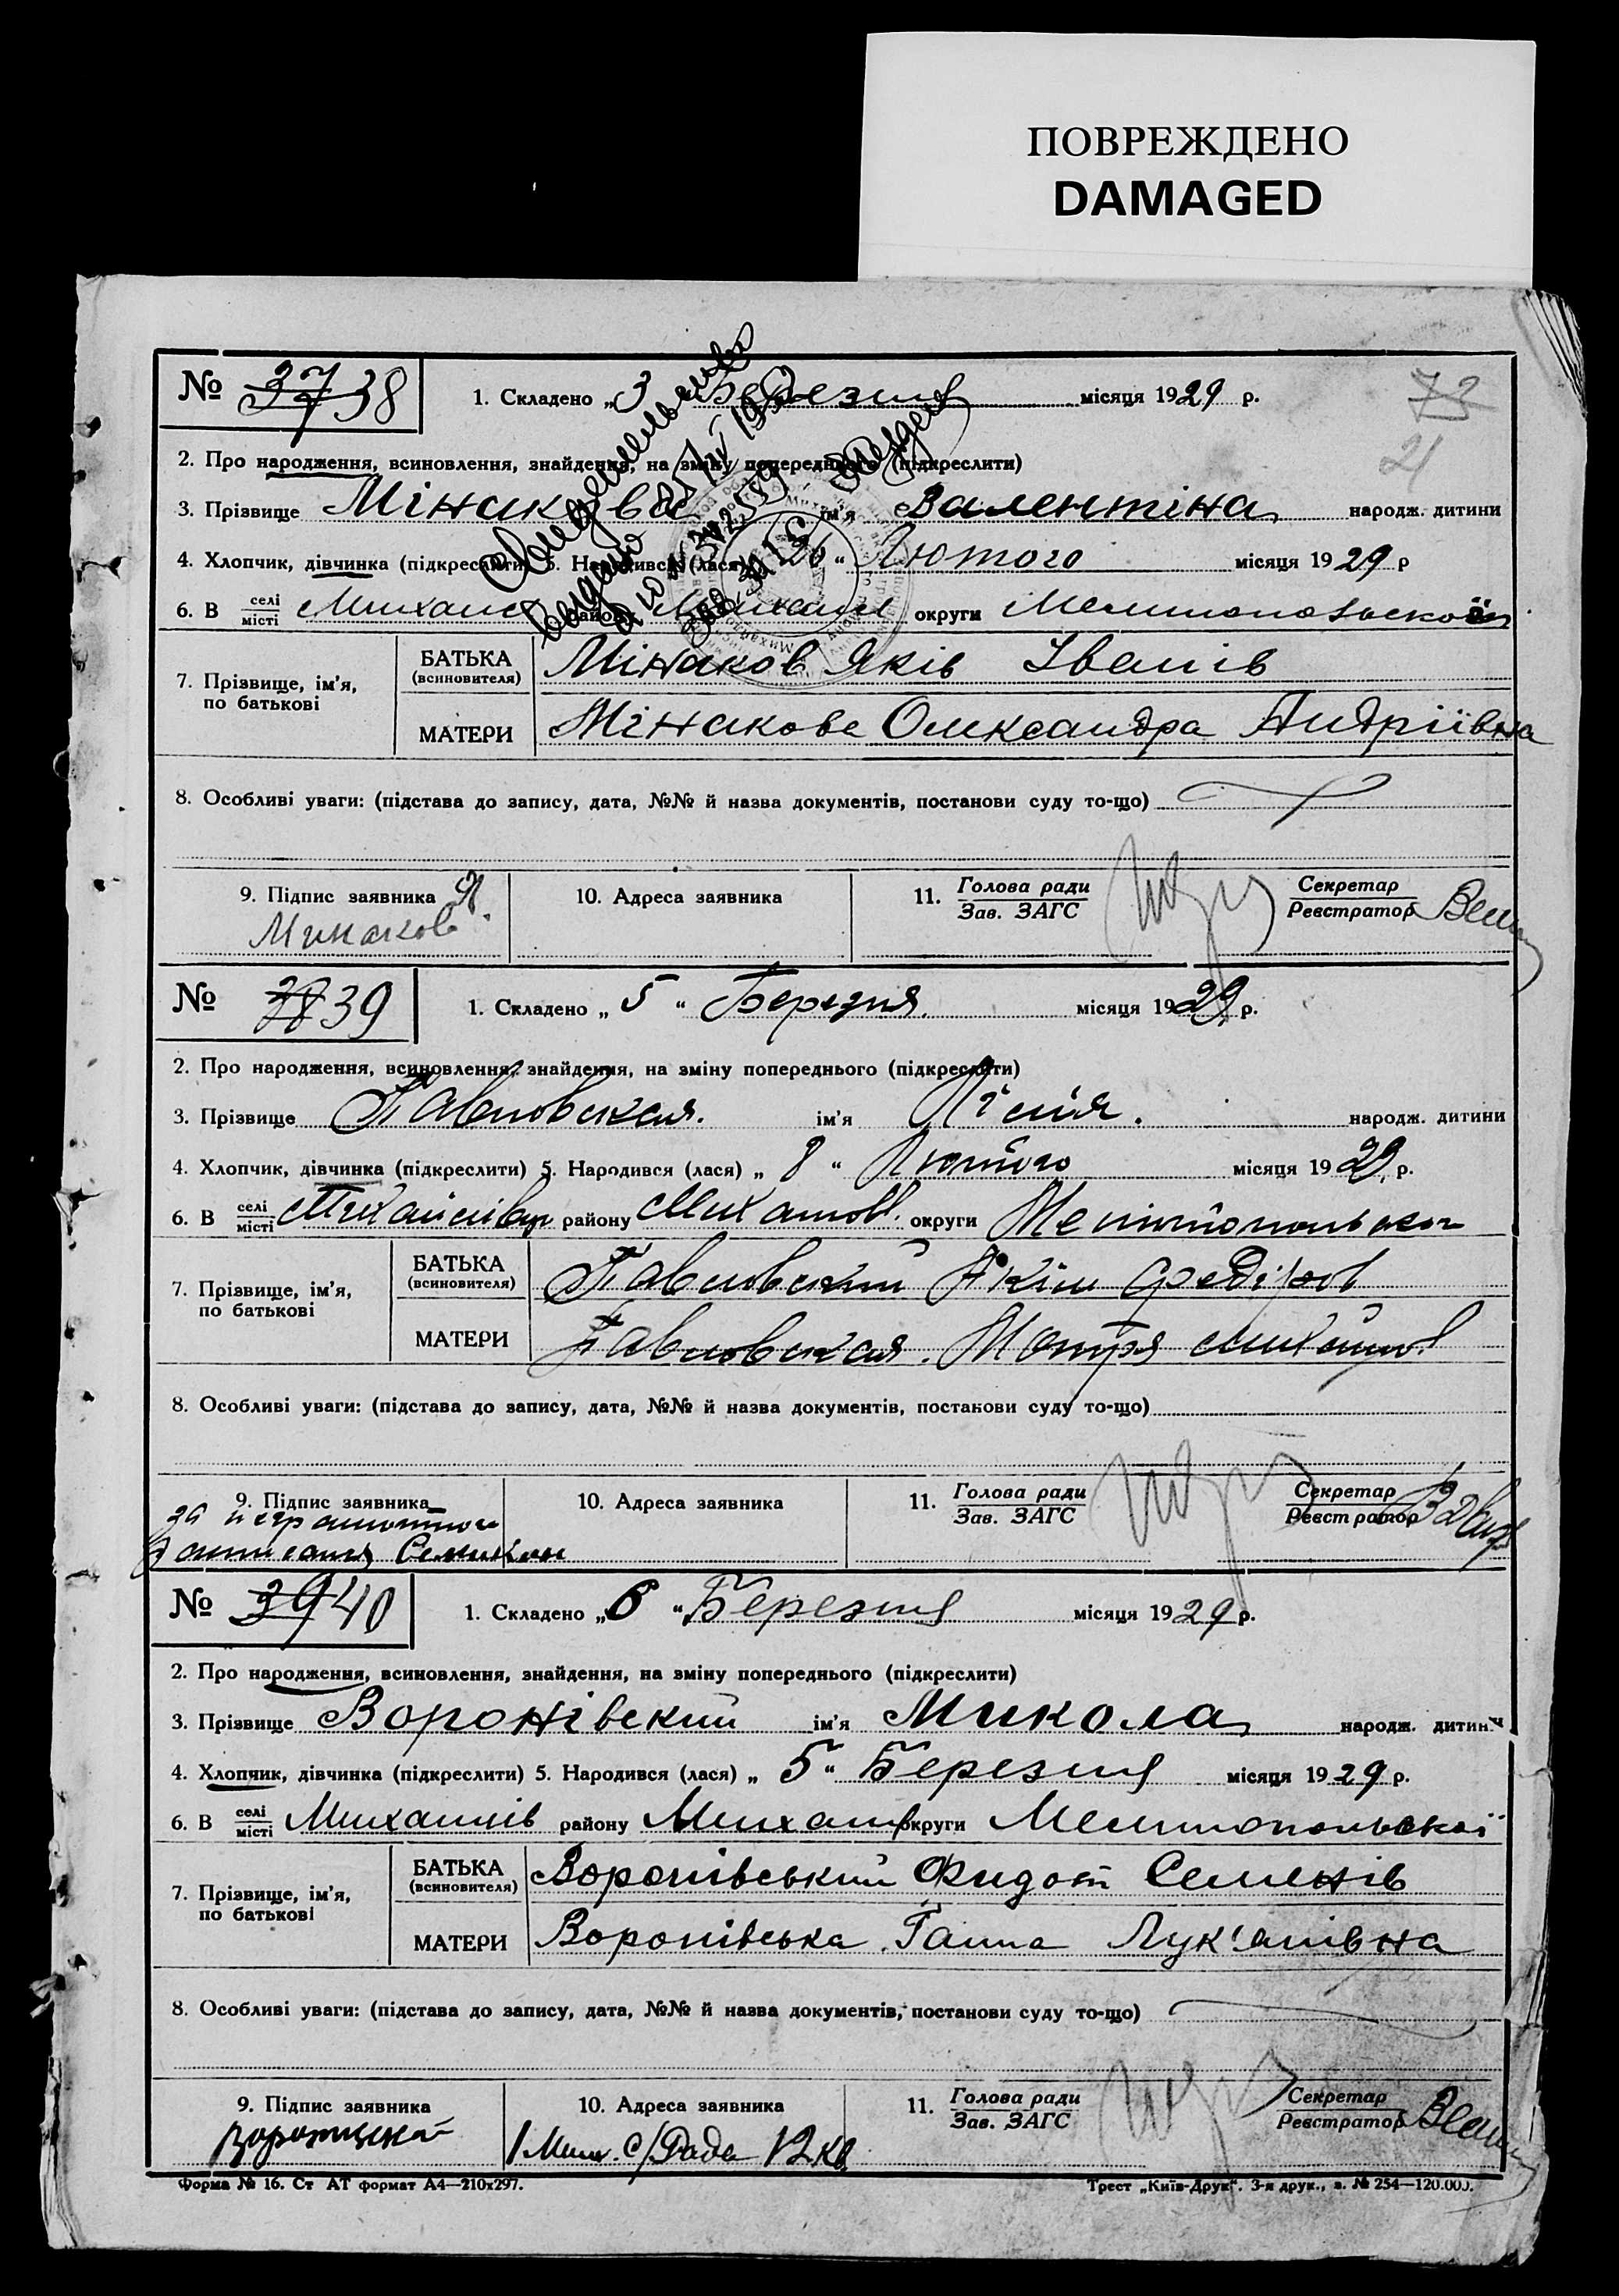 ПОВРЕЖДЕНО
DAMAGED
№ 37 38
1. Складено „3 “ Березня місяця 1929 р.
73
21
2. Про народження, всиновлення, знайдення, на зміну попереднього (підкреслити)
3. Прізвище Мінакова ім'я Валентіна народж. дитини
4. Хлопчик, дівчинка (підкреслити) 5. Народився (лася) „ 26 “ Лютого місяця 1929 р
6. В селі/місті Михайл району Михайл округи Мелитопольскоі
7. Прізвище, ім'я, по батькові
БАТЬКА (всиновителя) Мінаков Яків Іванів
МАТЕРИ Мінакова Олександра Андріівна
8. Особливі уваги: (підстава до запису, дата, №№ й назва документів, постанови суду то-що)
9. Підпис заявника Я. Минаков
10. Адреса заявника
11. Голова ради/Зав. ЗАГС
Секретар/Реєстратор
Свидетельство
выдано
№ 38 39
1. Складено „ 5 “ Березня місяця 1929 р.
2. Про народження, всиновлення, знайдення, на зміну попереднього (підкреслити)
3. Прізвище Павловская. ім'я Лідія. народж. дитини
4. Хлопчик, дівчинка (підкреслити) 5. Народився (лася) „ 8 “ Лютого місяця 1929 р.
6. В селі/місті Михайлівці району Михайлов. округи Мелитопольскоі
7. Прізвище, ім'я, по батькові
БАТЬКА (всиновителя) Павловский Якім Федіров
МАТЕРИ Павловская. Мотря Михайлов.
8. Особливі уваги: (підстава до запису, дата, №№ й назва документів, постанови суду то-що)
9. Підпис заявника
за неграмотного
10. Адреса заявника
11. Голова ради/Зав. ЗАГС
Секретар/Реєстратор
№ 39 40
1. Складено „6 “ Березня місяця 1929 р.
2. Про народження, всиновлення, знайдення, на зміну попереднього (підкреслити)
3. Прізвище Воронівский ім'я Микола народж. дитини
4. Хлопчик, дівчинка (підкреслити) 5. Народився (лася) „ 5 “ Березня місяця 1929 р.
6. В селі/місті Михайлів району Михайлів округи Мелитопольскоі
7. Прізвище, ім'я, по батькові
БАТЬКА (всиновителя) Воронівський Фидот Семенів
МАТЕРИ Воронівська Ганна Лук'янівна
8. Особливі уваги: (підстава до запису, дата, №№ й назва документів, постанови суду то-що)
9. Підпис заявника
10. Адреса заявника
1 Мих. с/Рада 12 кв.
11. Голова ради/Зав. ЗАГС
Секретар/Реєстратор
Форма № 16. Ст АТ формат А4—210х297.
Трест „Київ-Друк“. 3-я друк., з. № 254—120.000.